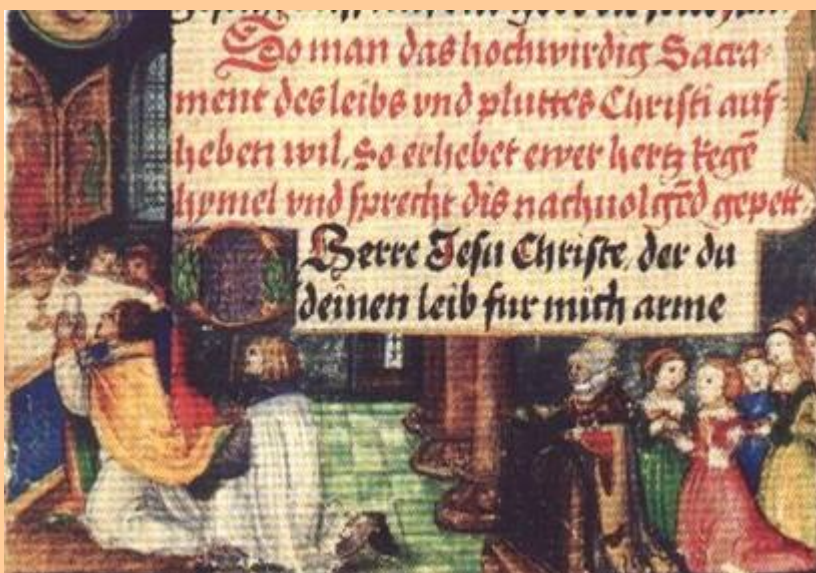 So man das hochwirdig Sacra-
ment des leibs vnd pluttes Christi auf-
heben wil. So erhebet ewer hertz kegē
hymel vnd sprecht dis nachuolgēd gepett
O Herre Jesu Christe, der du
deinen leib fur mich arme